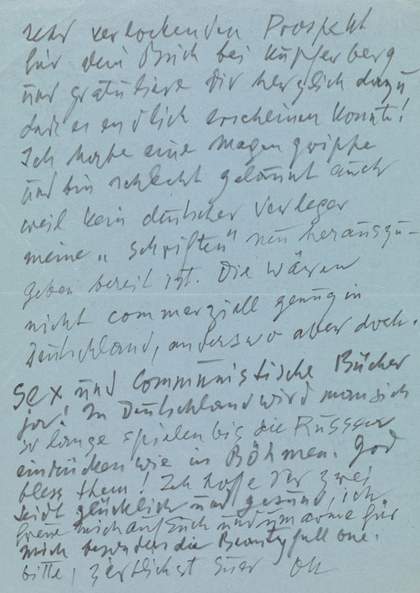 sehr verlockenden Prospekt
für dein Buch bei Kupferberg
und gratuliere Dir herzlich dazu
dass es endlich erscheinen konnte!
Ich habe eine Magengrippe
und bin schlecht gelaunt auch
weil kein deutscher Verleger
meine „Schriften" neu herauszu-
geben bereit ist. Die wären
nicht commerziell genug in
Deutschland, anderswo aber doch.
Sex und Communistische Bücher
ja! In Deutschland wird man sich
so lange spielen bis die Russen
einrücken wie in Böhmen. God
bless them! Ich hoffe Ihr zwei
seid glücklich und gesund, ich
freue mich auf Euch und umarme für
mich besonders die Beautyfull one.
bitte, zärtlichst Euer OK